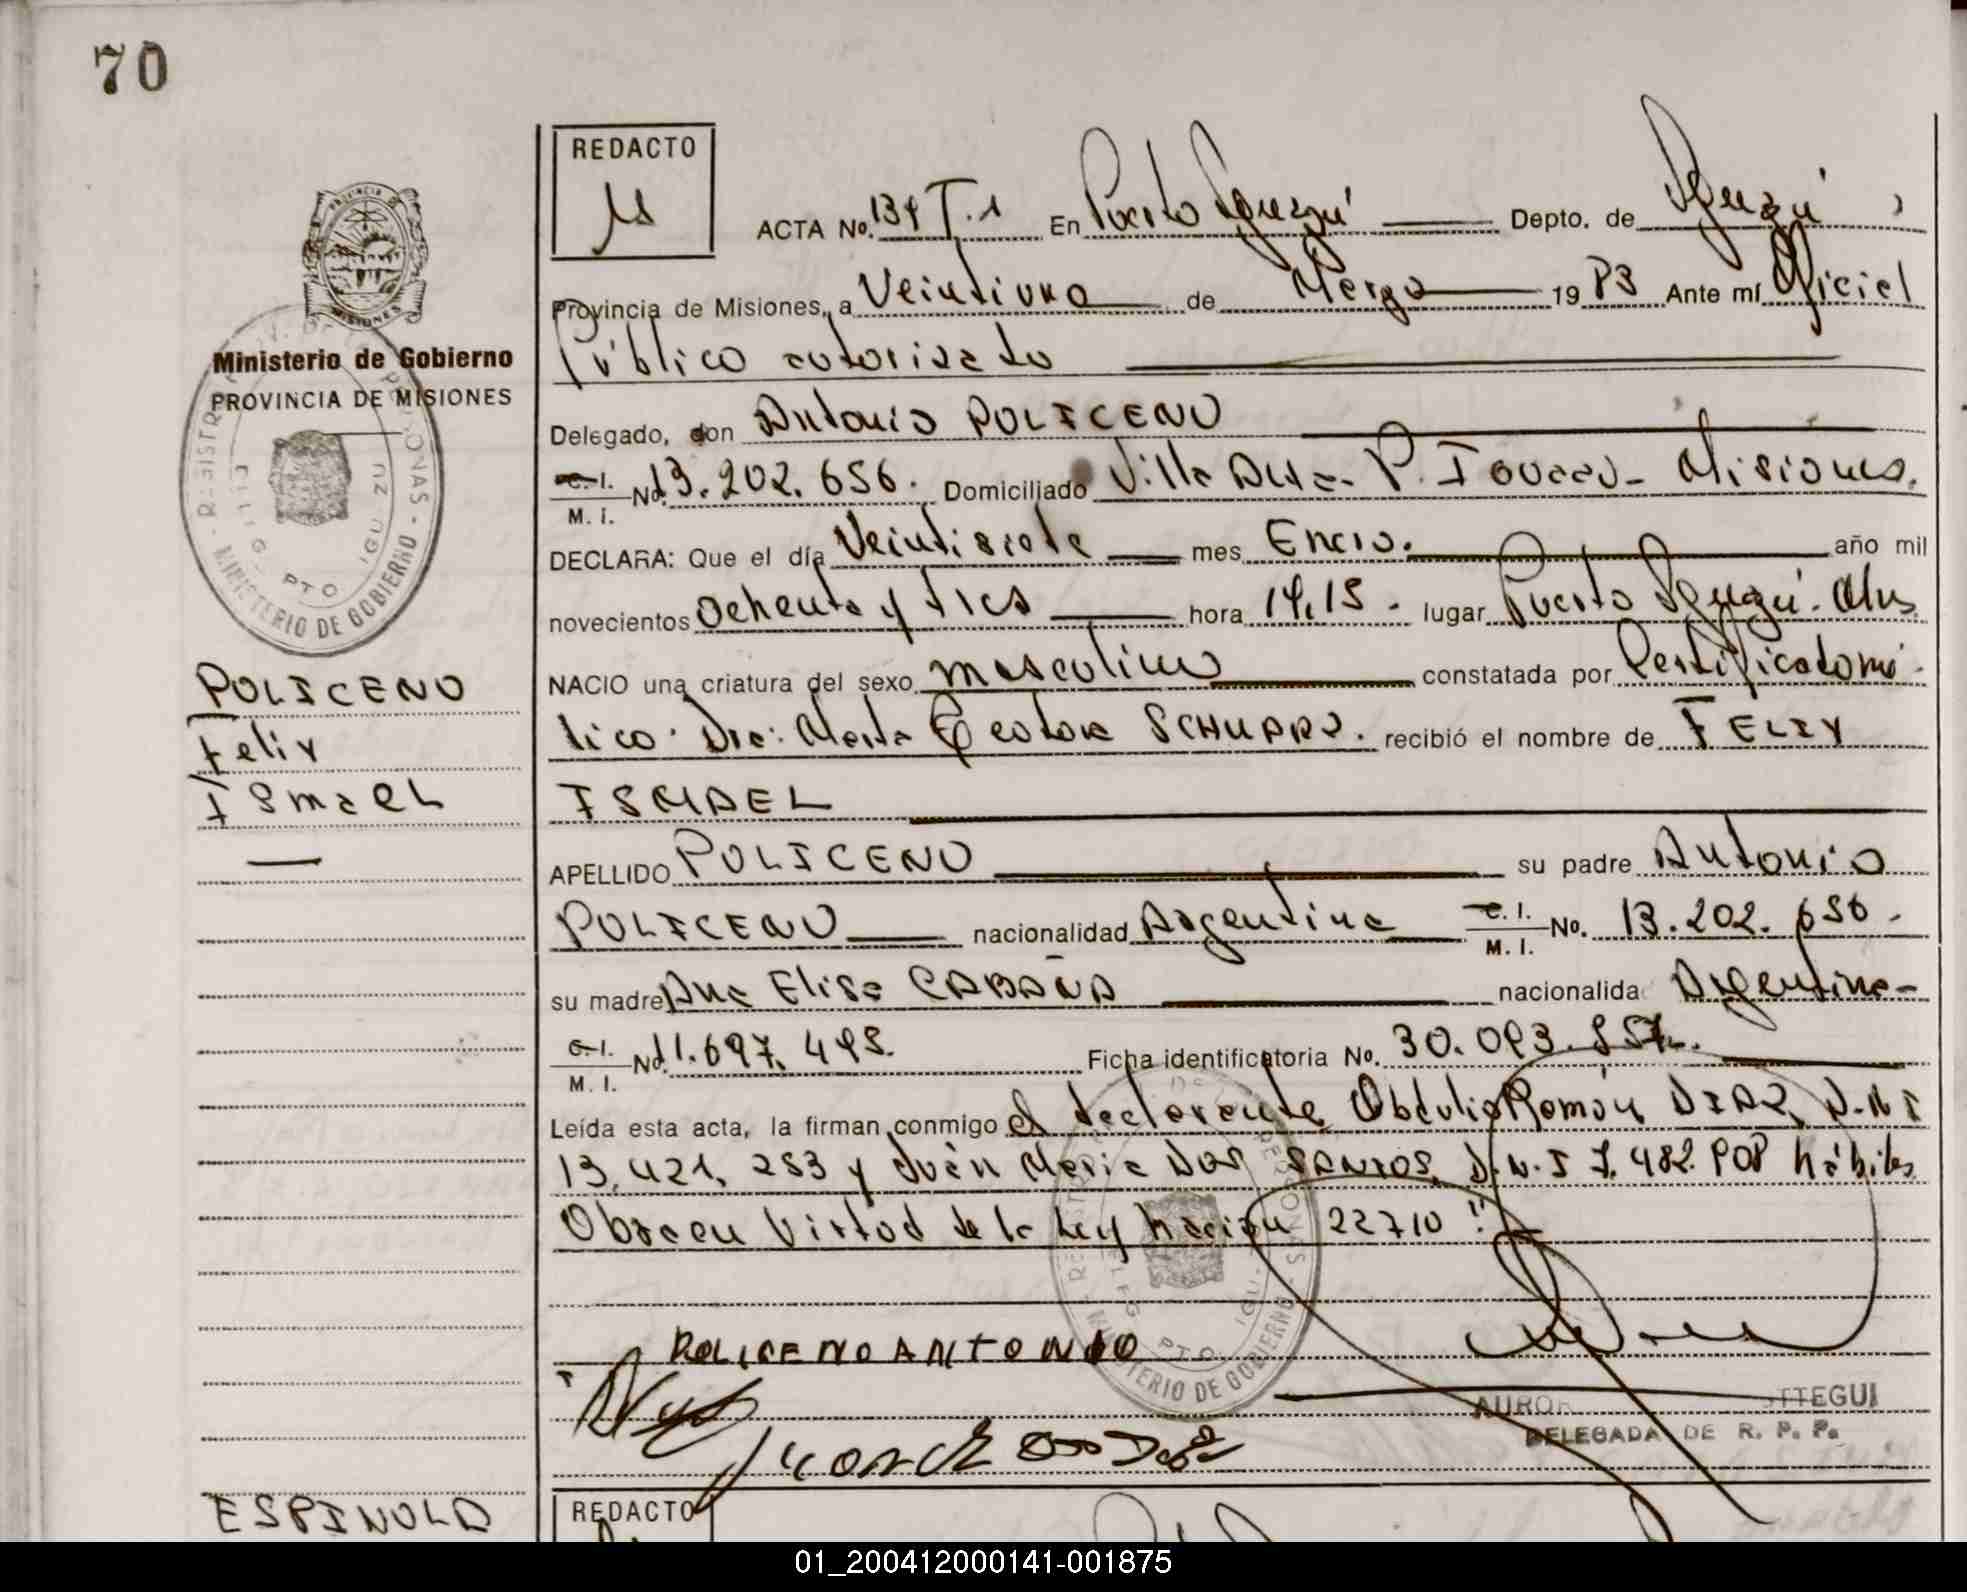 70
REDACTO
ACTA No. 134 T.1 En Puerto Iguazú Depto. de Iguazú,
Provincia de Misiones, a Veintiuno de Marzo 1983 Ante mí Oficial
Público autorizado
Delegado, don Antonio POLICENO
C. I. M. I. No. 13.202.656. Domiciliado Villa Alta- P. Iguazú- Misiones.
DECLARA: Que el día Veintisiete mes Enero. año mil
novecientos Ochenta y tres hora 14,15. lugar Puerto Iguazú. Mns.
NACIO una criatura del sexo masculino constatada por Certificado mé-
dico: Dra: Marta SCHUARZ. recibió el nombre de FELIX
ISMAEL
APELLIDO POLICENO su padre Antonio
POLICENO nacionalidad Argentina C. I. M. I. No. 13.202.656.
su madre Ana Elisa CABAÑA nacionalida Argentina-
C. I. M. I. No. 11.697.495. Ficha identificatoria No. 30.093.557.
Leída esta acta, la firman conmigo el declarante, Obdulio Ramón DIAZ, D.N.I
13.421.253 y Juan Maria DOS SANTOS, D.N.I 7.482.908 hábiles
Obra en Virtud de la Ley Nacion 22710"
POLICENO ANTONIO
TTEGUI
DELEGADA DE R. P. P.
Ministerio de Gobierno
PROVINCIA DE MISIONES
POLICENO
Felix
Ismael
ESPINOLA
REDACTO
01_200412000141-001875